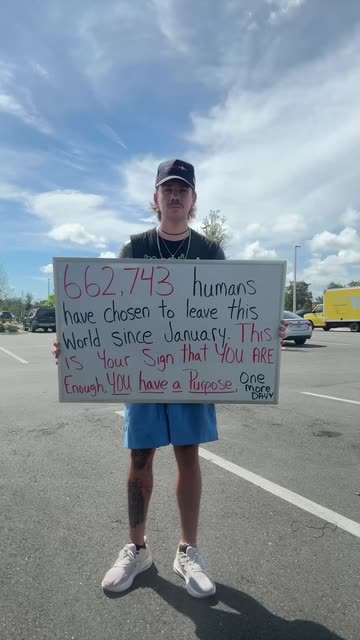 662,743 humans
have chosen to leave this
World since January. This
is Your Sign that YOU ARE
Enough, YOU have a Purpose. One
more
DAY